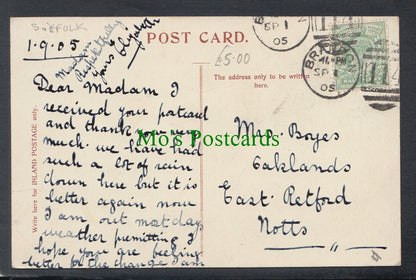 SUFFOLK
1.9.05
Madam
Respectfully
yours Elizabeth
POST CARD.
£5.00
BRANDON
SP 1
05
BRANDON
4 - PM
SP 1
05
114
The address only to be written here.
Write here for INLAND POSTAGE only:
Dear Madam I
received your postcard
and thank you very
much. we have had
such a lot of rain
down here but it is
better again now
I am out most days
weather premitting I
hope you are feeling
better for the change I am
Mo's Postcards
Mrs Boyes
Eaklands
East Retford
Notts